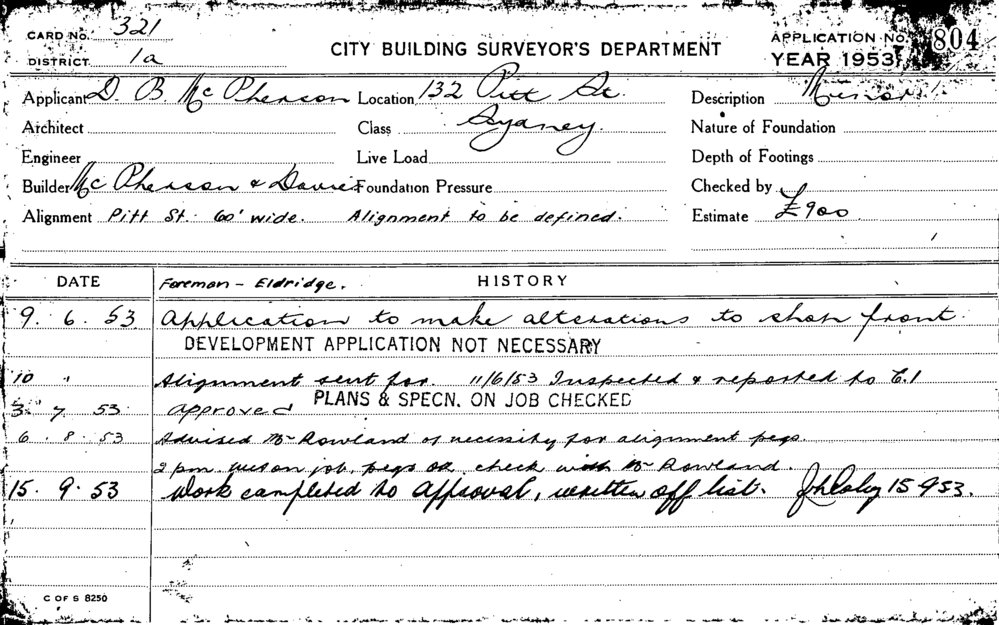 CARD No. 321
DISTRICT 1a
CITY BUILDING SURVEYOR'S DEPARTMENT
APPLICATION No. 804
YEAR 1953
Applicant D. B. McPherson Location 132 Pitt St. Description Minor
Architect Class Sydney. Nature of Foundation
Engineer Live Load Depth of Footings
Builder McPherson & Davies Foundation Pressure Checked by
Alignment Pitt St. 60' wide. Alignment to be defined. Estimate £900
DATE Foreman - Eldridge. HISTORY
9. 6. 53 Application to make alterations to shop front.
DEVELOPMENT APPLICATION NOT NECESSARY
10 " Alignment sent for. 11/6/53 Inspected & reported to C.I
3 7 53 approved PLANS & SPECN. ON JOB CHECKED
6. 8. 53 Advised Mr Rowland of necessity for alignment pegs.
2 pm. on job, pegs OK check with Mr Rowland.
15. 9. 53 Work completed to approval, written off list. 15 9 53.
C OF S 8250